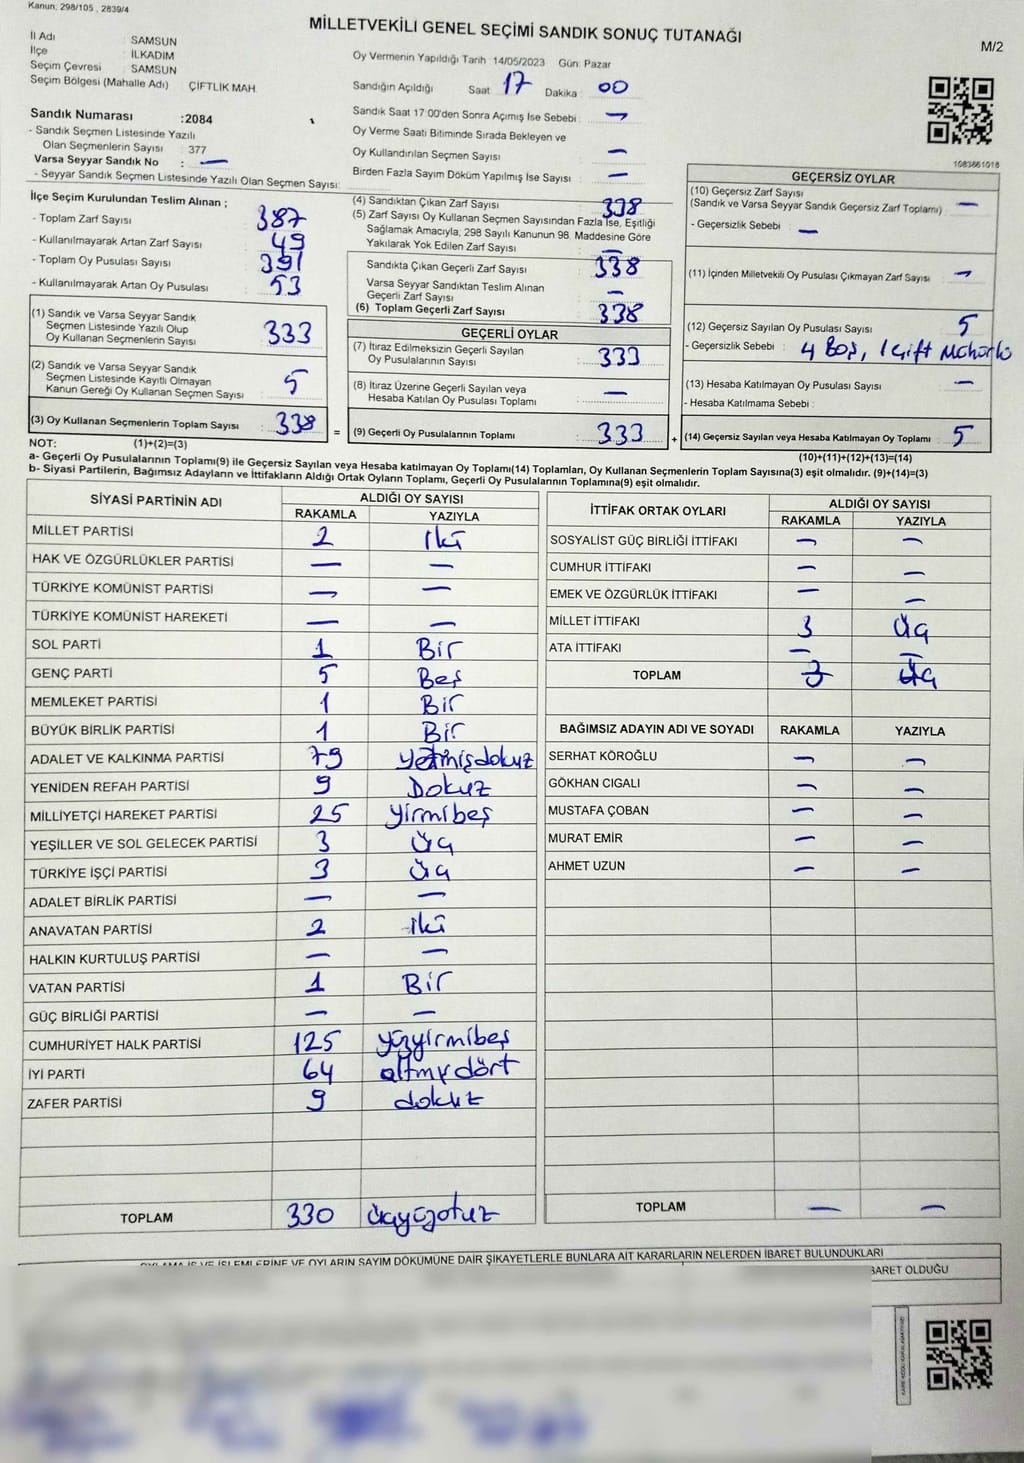 Kanun; 298/105 , 2839/4
MİLLETVEKİLİ GENEL SEÇİMİ SANDIK SONUÇ TUTANAĞI
M/2
İl Adı : SAMSUN
İlçe : İLKADIM
Seçim Çevresi : SAMSUN
Seçim Bölgesi (Mahalle Adı) : ÇİFTLİK MAH.
Sandık Numarası :2084
- Sandık Seçmen Listesinde Yazılı
Olan Seçmenlerin Sayısı : 377
Varsa Seyyar Sandık No : —
- Seyyar Sandık Seçmen Listesinde Yazılı Olan Seçmen Sayısı:
Oy Vermenin Yapıldığı Tarih 14/05/2023 Gün: Pazar
Sandığın Açıldığı Saat : 17 Dakika : 00
Sandık Saat 17:00'den Sonra Açımış İse Sebebi : —
Oy Verme Saati Bitiminde Sırada Bekleyen ve
Oy Kullandırılan Seçmen Sayısı : —
Birden Fazla Sayım Döküm Yapılmış İse Sayısı : —
1083861016
İlçe Seçim Kurulundan Teslim Alınan ;
- Toplam Zarf Sayısı : 387
- Kullanılmayarak Artan Zarf Sayısı : 49
- Toplam Oy Pusulası Sayısı : 391
- Kullanılmayarak Artan Oy Pusulası : 53
(1) Sandık ve Varsa Seyyar Sandık
Seçmen Listesinde Yazılı Olup
Oy Kullanan Seçmenlerin Sayısı : 333
(2) Sandık ve Varsa Seyyar Sandık
Seçmen Listesinde Kayıtlı Olmayan
Kanun Gereği Oy Kullanan Seçmen Sayısı : 5
(3) Oy Kullanan Seçmenlerin Toplam Sayısı : 338 =
(4) Sandıktan Çıkan Zarf Sayısı : 338
(5) Zarf Sayısı Oy Kullanan Seçmen Sayısından Fazla İse, Eşitliği
Sağlamak Amacıyla, 298 Sayılı Kanunun 98. Maddesine Göre
Yakılarak Yok Edilen Zarf Sayısı : —
Sandıkta Çıkan Geçerli Zarf Sayısı : 338
Varsa Seyyar Sandıktan Teslim Alınan
Geçerli Zarf Sayısı : —
(6) Toplam Geçerli Zarf Sayısı : 338
GEÇERLİ OYLAR
(7) İtiraz Edilmeksizin Geçerli Sayılan
Oy Pusulalarının Sayısı : 333
(8) İtiraz Üzerine Geçerli Sayılan veya
Hesaba Katılan Oy Pusulası Toplamı : —
(9) Geçerli Oy Pusulalarının Toplamı : 333 +
GEÇERSİZ OYLAR
(10) Geçersiz Zarf Sayısı
(Sandık ve Varsa Seyyar Sandık Geçersiz Zarf Toplamı) : —
- Geçersizlik Sebebi : —
(11) İçinden Milletvekili Oy Pusulası Çıkmayan Zarf Sayısı : —
(12) Geçersiz Sayılan Oy Pusulası Sayısı : 5
- Geçersizlik Sebebi : 4 Boş, 1 Çift Mühürlü
(13) Hesaba Katılmayan Oy Pusulası Sayısı : —
- Hesaba Katılmama Sebebi :
(14) Geçersiz Sayılan veya Hesaba Katılmayan Oy Toplamı : 5
NOT: (1)+(2)=(3) (10)+(11)+(12)+(13)=(14)
a- Geçerli Oy Pusulalarının Toplamı(9) ile Geçersiz Sayılan veya Hesaba katılmayan Oy Toplamı(14) Toplamları, Oy Kullanan Seçmenlerin Toplam Sayısına(3) eşit olmalıdır. (9)+(14)=(3)
b- Siyasi Partilerin, Bağımsız Adayların ve İttifakların Aldığı Ortak Oyların Toplamı, Geçerli Oy Pusulalarının Toplamına(9) eşit olmalıdır.
SİYASİ PARTİNİN ADI ALDIĞI OY SAYISI
RAKAMLA YAZIYLA
MİLLET PARTİSİ 2 iki
HAK VE ÖZGÜRLÜKLER PARTİSİ — —
TÜRKİYE KOMÜNİST PARTİSİ — —
TÜRKİYE KOMÜNİST HAREKETİ — —
SOL PARTİ 1 Bir
GENÇ PARTİ 5 Beş
MEMLEKET PARTİSİ 1 Bir
BÜYÜK BİRLİK PARTİSİ 1 Bir
ADALET VE KALKINMA PARTİSİ 79 yetmişdokuz
YENİDEN REFAH PARTİSİ 9 Dokuz
MİLLİYETÇİ HAREKET PARTİSİ 25 yirmibeş
YEŞİLLER VE SOL GELECEK PARTİSİ 3 üç
TÜRKİYE İŞÇİ PARTİSİ 3 üç
ADALET BİRLİK PARTİSİ — —
ANAVATAN PARTİSİ 2 iki
HALKIN KURTULUŞ PARTİSİ — —
VATAN PARTİSİ 1 Bir
GÜÇ BİRLİĞİ PARTİSİ — —
CUMHURİYET HALK PARTİSİ 125 yüzyirmibeş
İYİ PARTİ 64 altmışdört
ZAFER PARTİSİ 9 dokuz
TOPLAM 330 üçyüzotuz
İTTİFAK ORTAK OYLARI ALDIĞI OY SAYISI
RAKAMLA YAZIYLA
SOSYALİST GÜÇ BİRLİĞİ İTTİFAKI — —
CUMHUR İTTİFAKI — —
EMEK VE ÖZGÜRLÜK İTTİFAKI — —
MİLLET İTTİFAKI 3 üç
ATA İTTİFAKI — —
TOPLAM 3 üç
BAĞIMSIZ ADAYIN ADI VE SOYADI RAKAMLA YAZIYLA
SERHAT KÖROĞLU — —
GÖKHAN CIGALI — —
MUSTAFA ÇOBAN — —
MURAT EMİR — —
AHMET UZUN — —
TOPLAM — —
OYLAMA İŞ VE İŞLEMLERİNE VE OYLARIN SAYIM DÖKÜMÜNE DAİR ŞİKAYETLERLE BUNLARA AİT KARARLARIN NELERDEN İBARET BULUNDUKLARI
BARET OLDUĞU